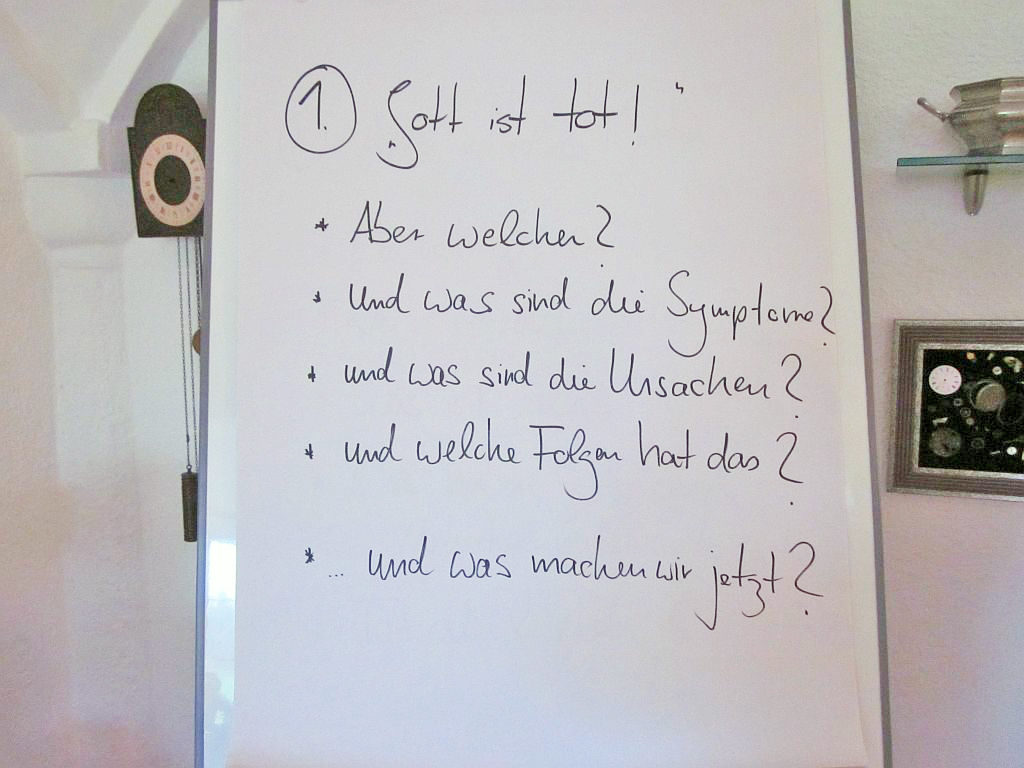 1. „Gott ist tot!“
* Aber welcher?
* und was sind die Symptome?
* und was sind die Ursachen?
* und welche Folgen hat das?
* ... und was machen wir jetzt?